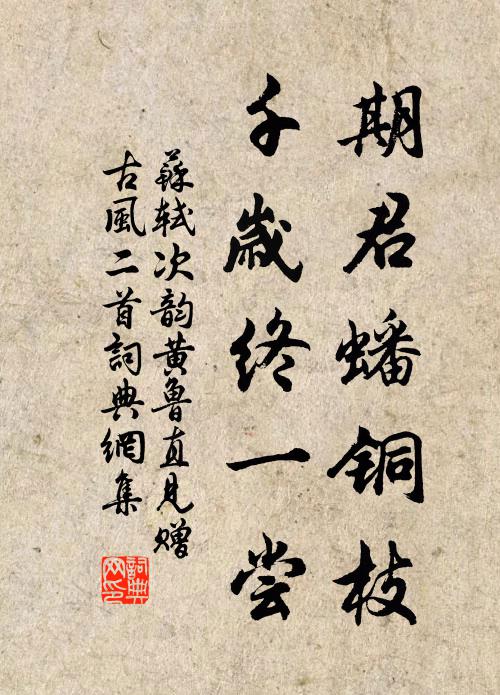 期君蟠铜枝
千歳终一尝
蘇轼次韵黄鲁直見赠
古風二首詞典網集
詞典网印